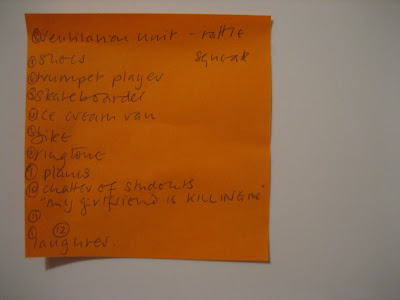 ventilation unit - rattle
squeak
shoes
trumpet player
skateboarder
ice cream van
bike
ringtone
planes
⑩ chatter of students
"my girlfriend is KILLING me"
⑪
⑫
laughter.